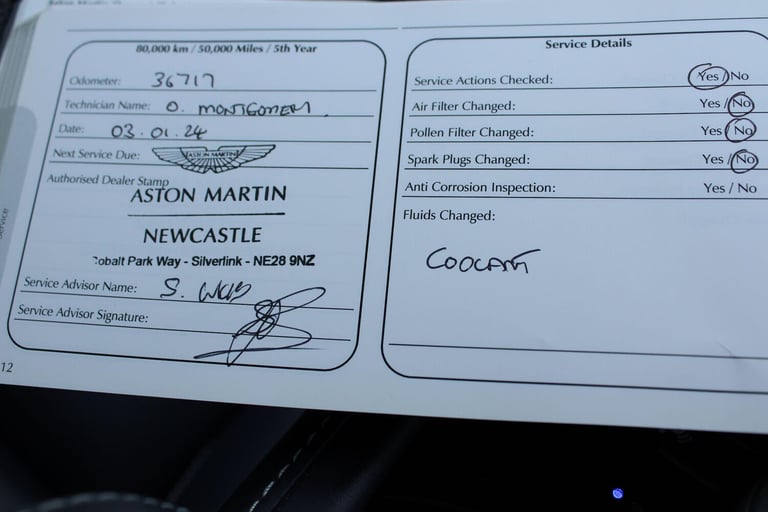 80,000 km / 50,000 Miles / 5th Year
Odometer: 36717
Technician Name: O. MONTGOMERY.
Date: 03.01.24
Next Service Due:
ASTON MARTIN
Authorised Dealer Stamp
ASTON MARTIN
NEWCASTLE
Cobalt Park Way - Silverlink - NE28 9NZ
Service Advisor Name: S.
Service Advisor Signature:
12
Service Details
Service Actions Checked: Yes / No
Air Filter Changed: Yes / No
Pollen Filter Changed: Yes / No
Spark Plugs Changed: Yes / No
Anti Corrosion Inspection: Yes / No
Fluids Changed:
COOLANT